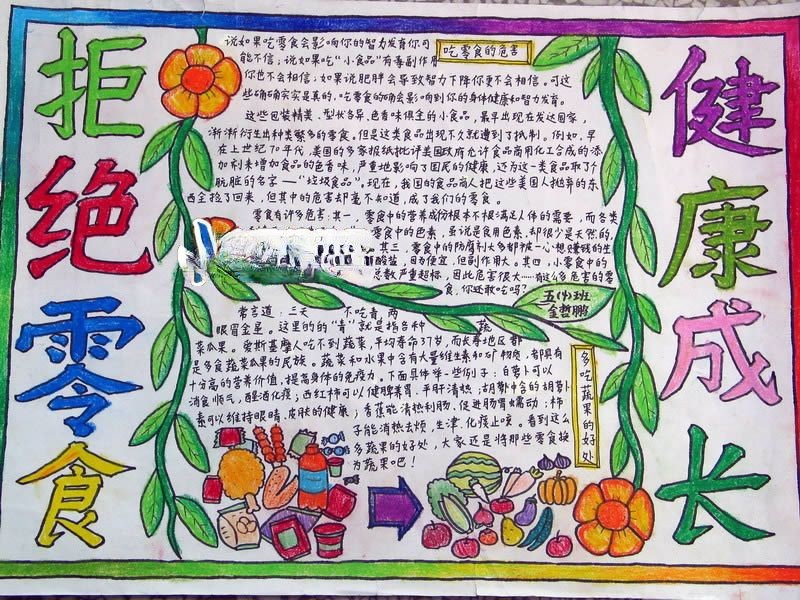 拒绝零食
健康成长
吃零食的危害
说如果吃零食会影响你的智力发育你可
能不信；说如果吃“小食品”有毒副作用
你也不会相信；如果说肥胖会导致智力下降你更不会相信。可这
些确确实实是真的，吃零食的确会影响到你的身体健康和智力发育。
这些包装精美、型状各异、色香味俱全的小食品，最早出现在发达国家，
渐渐衍生出种类繁多的零食。但是这类食品出现不久就遭到了抵制。例如，早
在上世纪70年代，美国的多家报纸批评美国政府允许食品商用化工合成的添
加剂来增加食品的色香味，严重地影响了国民的健康，还为这一类食品取了个
肮脏的名字——“垃圾食品”。现在，我国的食品商人把这些美国人抛弃的东
西全捡了回来，但其中的危害却毫不知道，成了我们的零食。
零食有许多危害：其一，零食中的营养成份根本不根满足人体的需要，而各类
零食中的色素，虽说是食用色素，却很少是天然的，
其三，零食中的防腐剂大多都被一心想赚钱的生
酸盐，因为便宜，但副作用大。其四，小零食中的
总数严重超标，因此危害很大……有这么多危害的零
食，你还敢吃吗？
五(4)班
金哲鹏
多吃蔬果的好处
常言道：三天 不吃青，两
眼冒金星。这里的的“青”就是指各种 蔬
菜瓜果。爱斯基摩人吃不到蔬菜，平均寿命37岁，而长寿地区都
是多食蔬菜瓜果的民族。蔬菜和水果中含有大量维生素和矿物质，都具有
十分高的营养价值，提高身体的免疫力。下面具体举一些例子：白萝卜可以
消食顺气，醒酒化痰；西红柿可以健脾养胃、平肝清热；胡萝卜中含的胡萝卜
素可以维持眼睛、皮肤的健康；香蕉能清热利肠，促进肠胃蠕动；柿
子能消热去烦，生津、化痰止咳。看到这么
多蔬果的好处，大家还是将那些零食换
为蔬果吧！